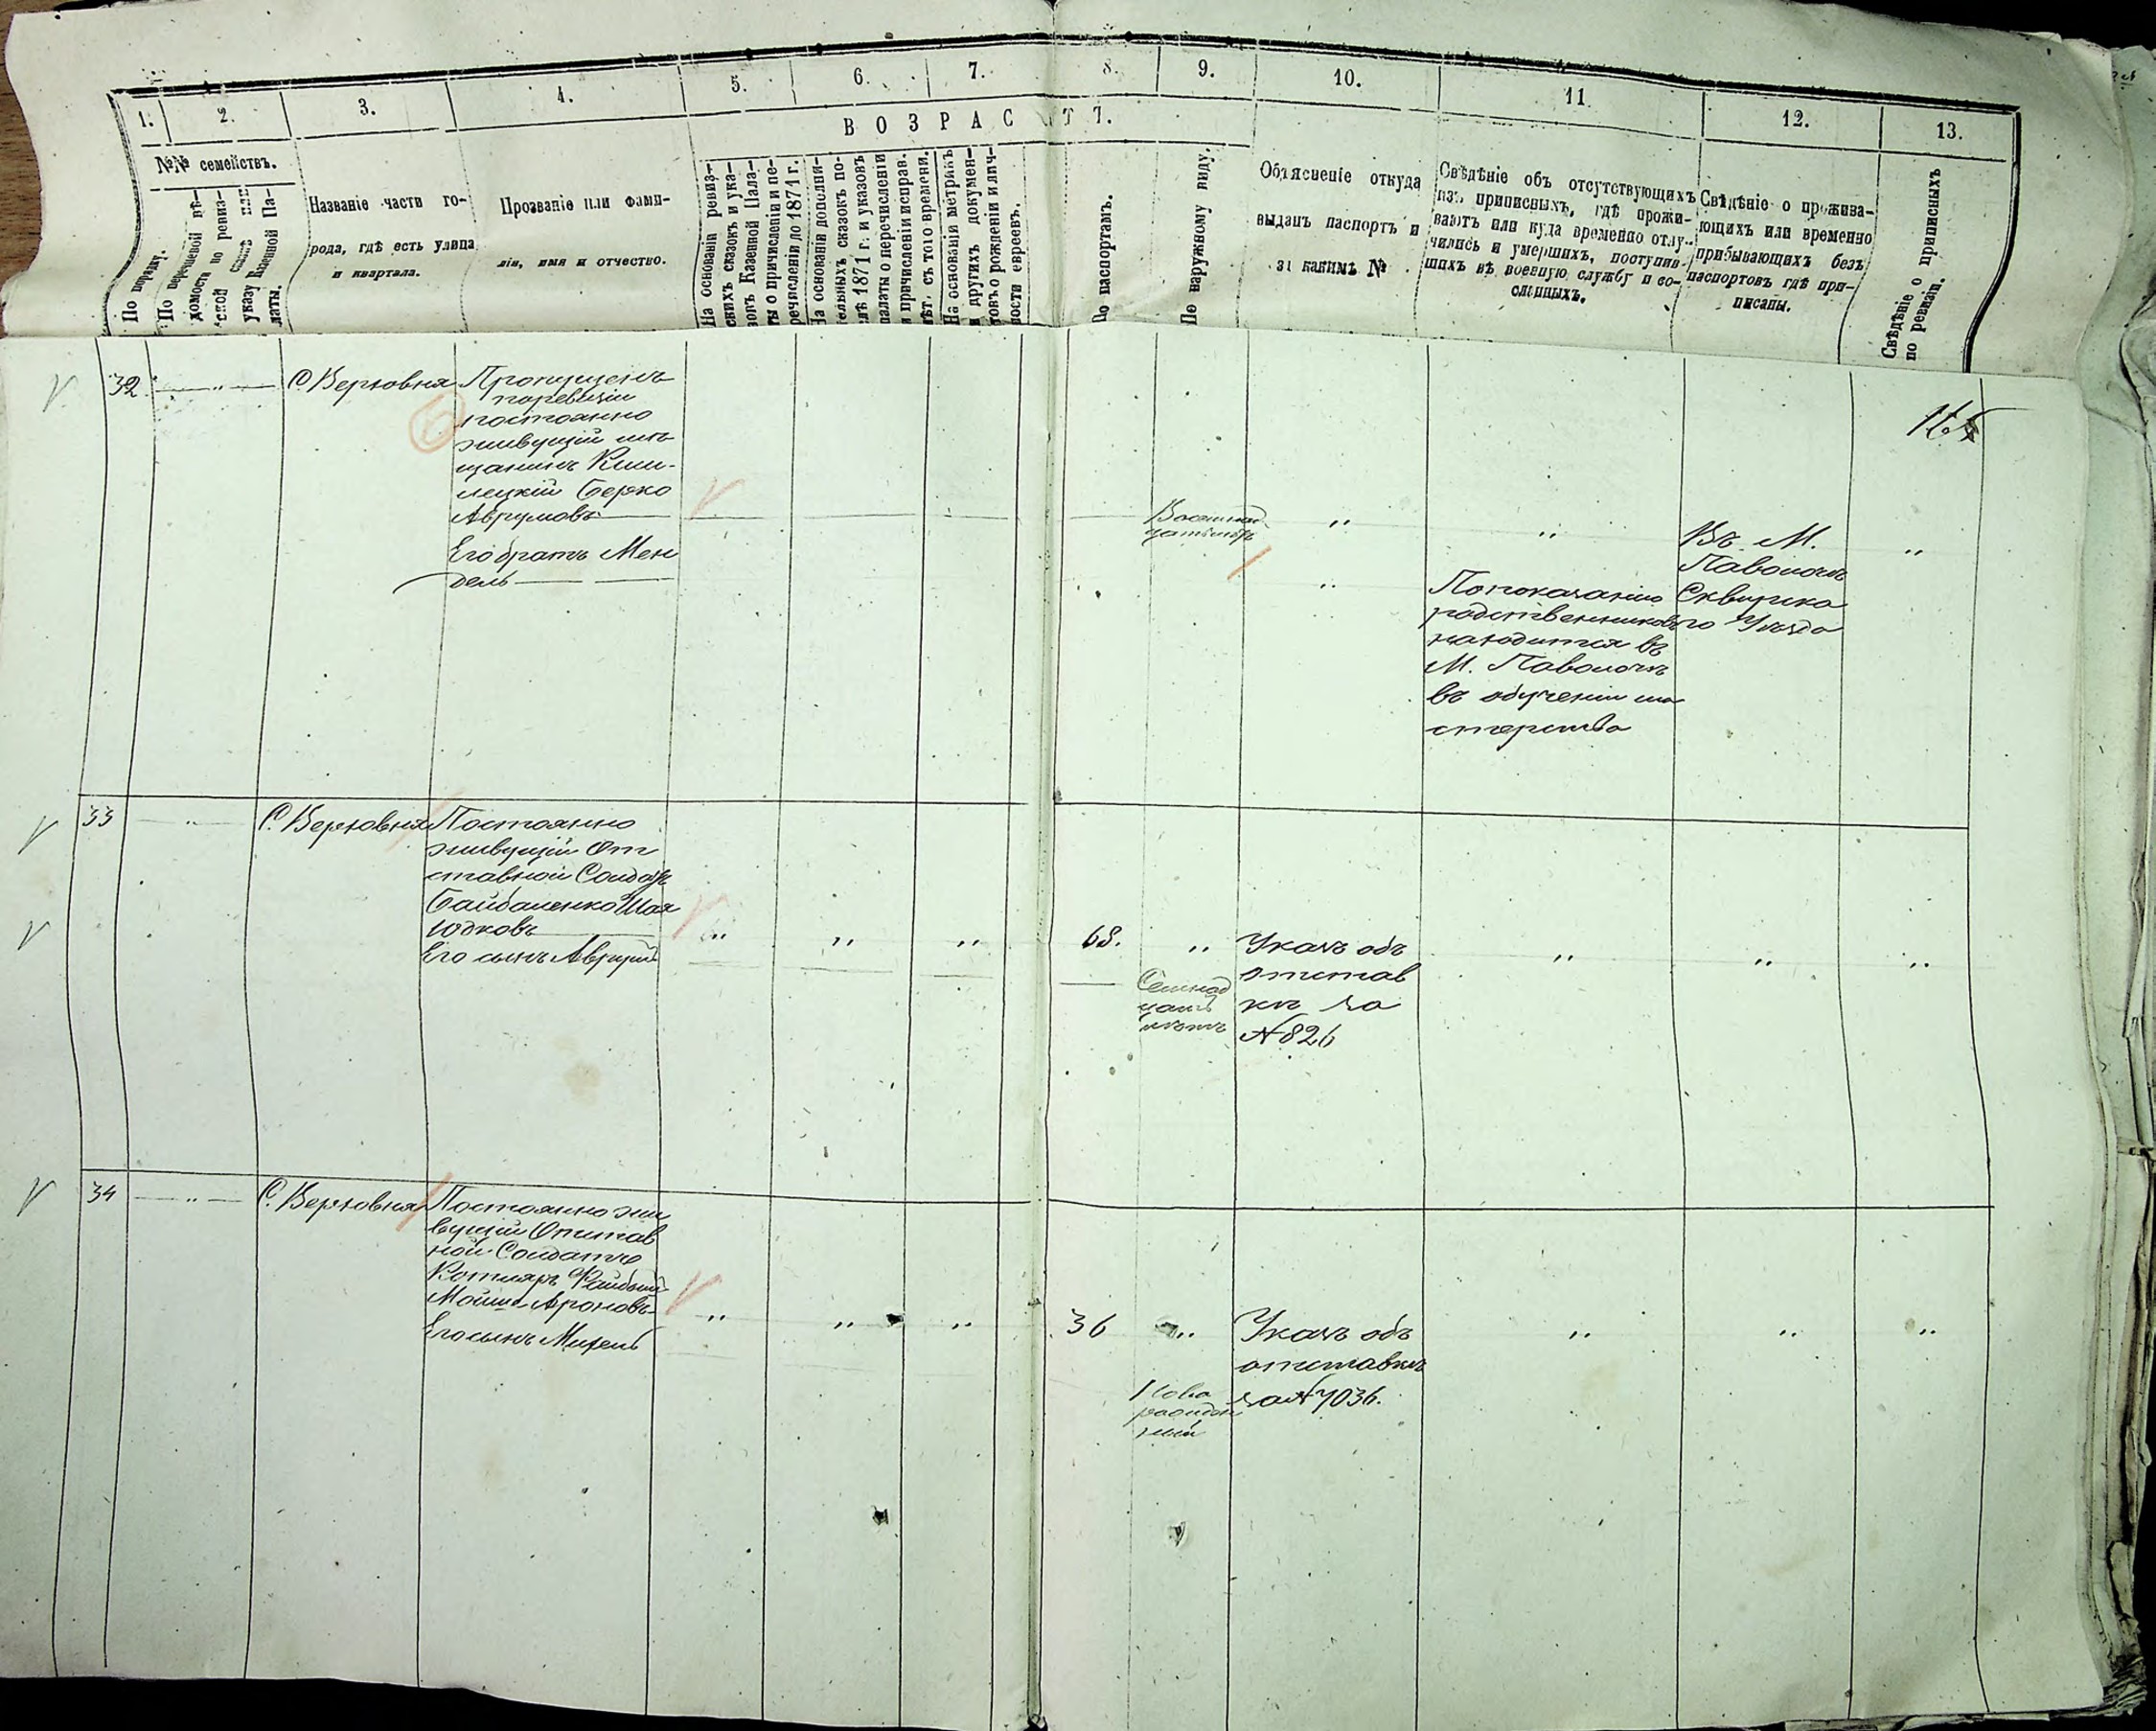 1.
2.
3.
4.
5.
6.
7.
8.
9.
10.
11.
12.
13.
ВОЗРАСТЪ.
№№ семействъ.
По порядку.
По
домости по ревиз-
ской сказкѣ или
указу Казенной Па-
латы.
Названіе части го-
рода, гдѣ есть улица
и квартала.
Прозваніе или фами-
лія, имя и отчество.
На основаніи ревиз-
скихъ сказокъ и ука-
зовъ Казенной Пала-
ты о причисленіи и пе-
речисленіи до 1871 г.
На основаніи дополни-
тельныхъ сказокъ по-
слѣ 1871 г. и указовъ
палаты о перечисленіи
и причисленіи исправ.
лѣт. съ того времени.
На основаніи метрикъ
и другихъ докумен-
товъ о рожденіи и лич-
ности евреевъ.
По паспортамъ.
По наружному виду.
Объясненіе откуда
выданъ паспортъ и
за какимъ №
Свѣдѣніе объ отсутствующихъ
изъ приписныхъ, гдѣ прожи-
ваютъ или куда временно отлу-
чились и умершихъ, поступив-
шихъ въ военную службу и со-
сланныхъ.
Свѣдѣніе о прожива-
ющихъ или временно
прибывающихъ безъ
паспортовъ гдѣ при-
писаны.
Свѣдѣніе о приписныхъ
по ревизіи.
32
— „ —
С. Верховня
Пропущенъ
по ревизіи
постоянно
живущій мѣ
щанинъ
Берко
Аврумовъ
Восемнад
цать лѣтъ
„
„
Въ М.
Паволочѣ
Сквирска
го Уѣзда
„
Его братъ Мен
дель
„
По показанію
родственниковъ
находится въ
М. Паволочѣ
въ обученіи ма
стерства
33
„
С. Верховня
Постоянно
живущій От
ставной Солдатъ
Байбаленко Шая
Юдковъ
„
„
„
68.
„
Указъ объ
отстав
кѣ за
№ 826
„
„
„
Его сынъ Аврумъ
Семнад
цать
лѣтъ
34
— „ —
С. Верховня
Постоянно жи
вущій Отстав
ной Солдатъ
Котляръ
Мойше Ароновъ
„
„
„
36
„
Указъ объ
отставкѣ
за № 7036.
„
„
„
Его сынъ
Ново
рожден
ный